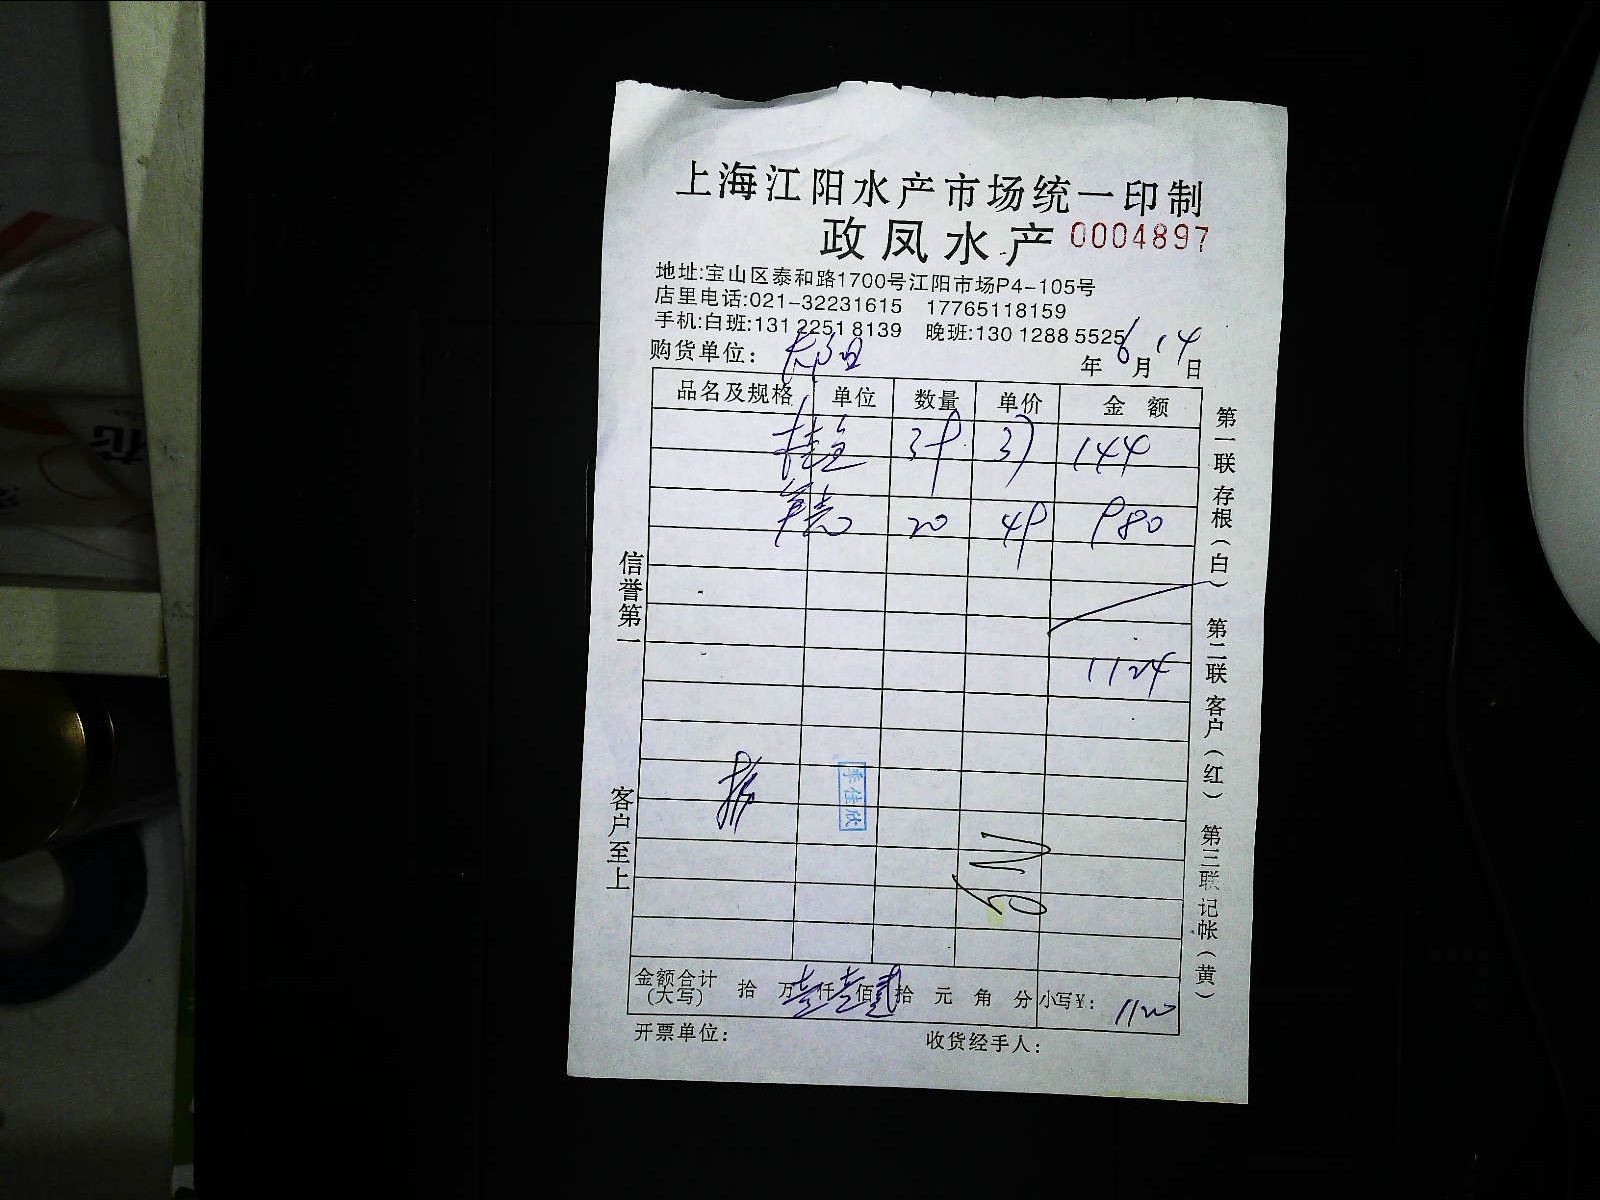 上海江阳水产市场统一印制
政凤水产 0004897
地址:宝山区泰和路1700号江阳市场P4-105号
店里电话:021-32231615 17765118159
手机:白班:131 2251 8139 晚班:130 1288 5525
购货单位: 年6月14日
品名及规格 单位 数量 单价 金额
桂鱼 37 144
20 49 980
1124
季佳欣
金额合计(大写) 拾万壹仟壹佰贰拾元角分 小写¥: 1120
开票单位: 收货经手人:
信誉第一 客户至上
第一联存根(白) 第二联客户(红) 第三联记帐(黄)